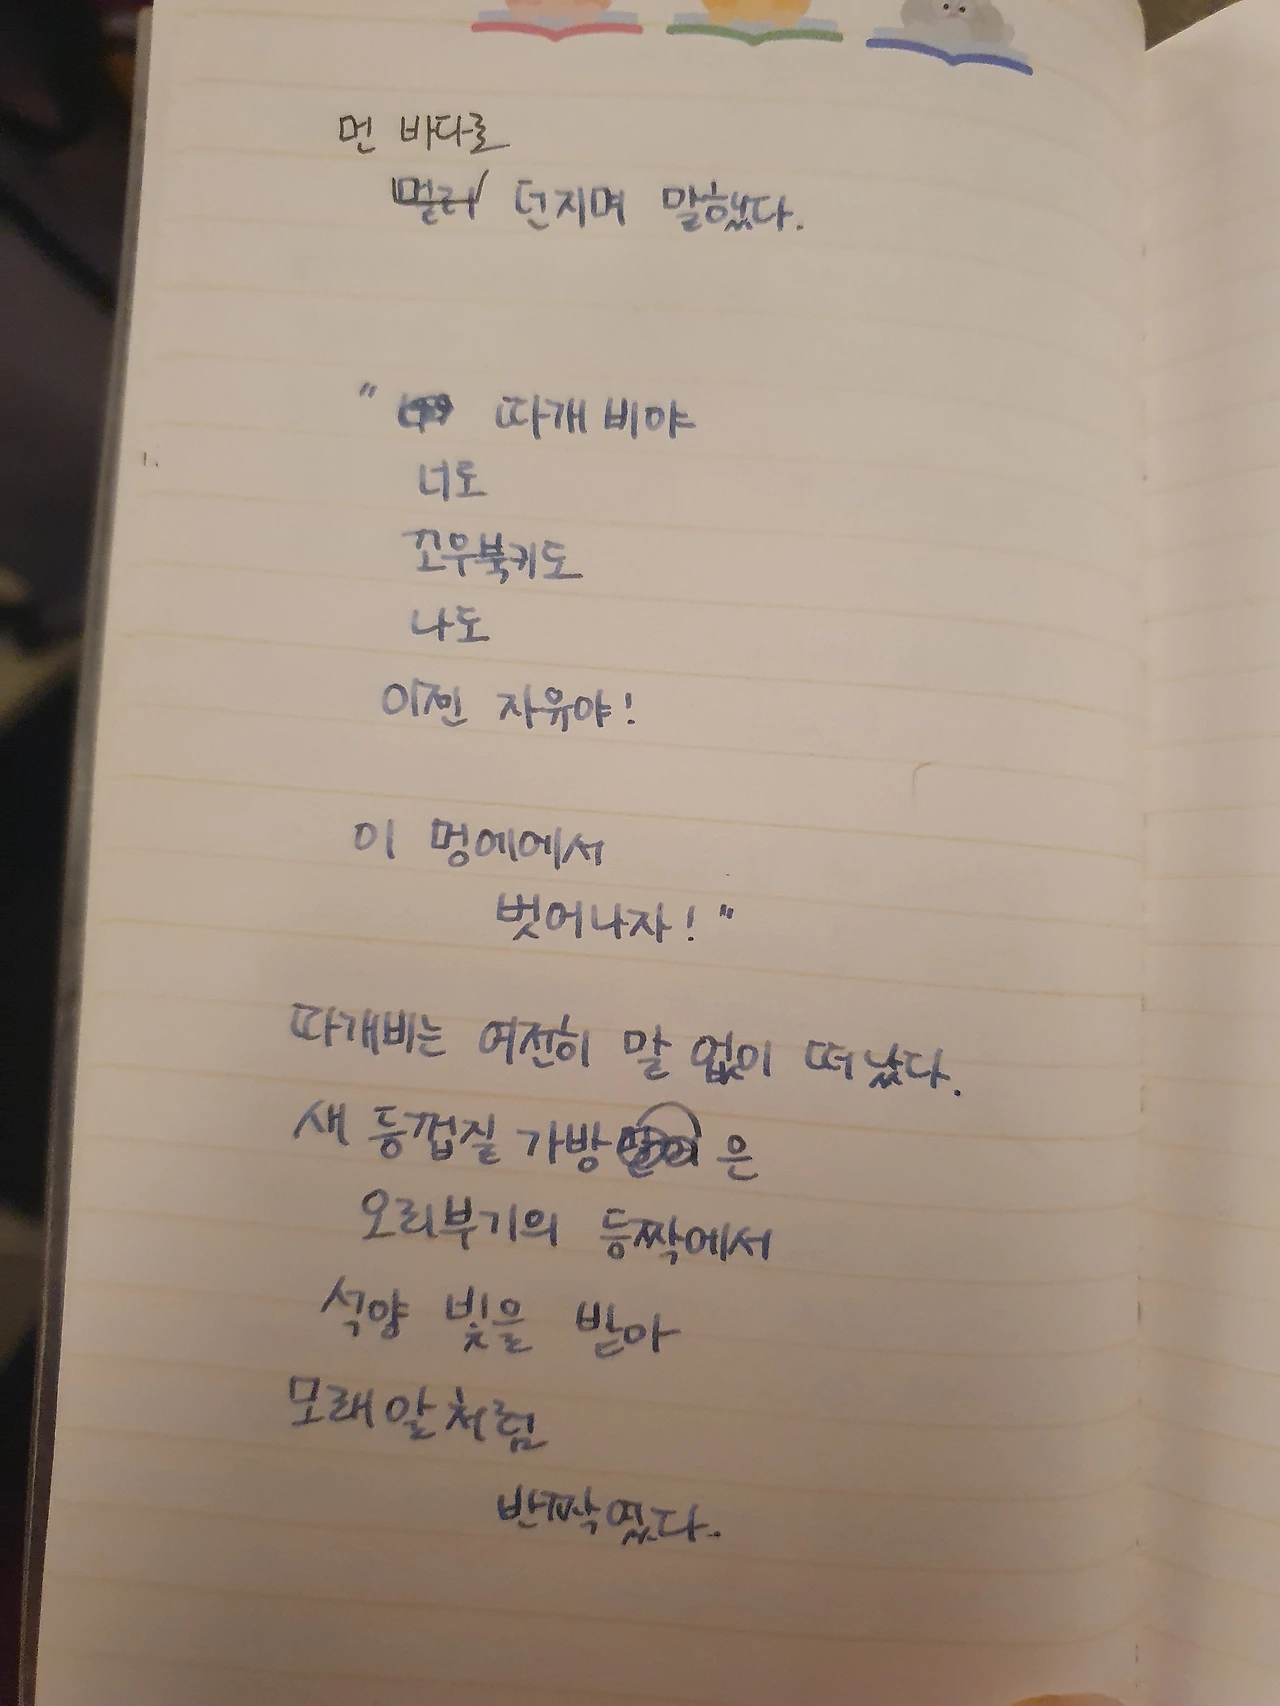 먼 바다로
멀리 던지며 말했다.
" 따개비야
너도
꼬우북키도
나도
이젠 자유야!
이 멍에에서
벗어나자! "
따개비는 여전히 말 없이 떠났다.
새 등껍질 가방 은
오리부기의 등짝에서
석양 빛을 받아
모래알처럼
반짝였다.